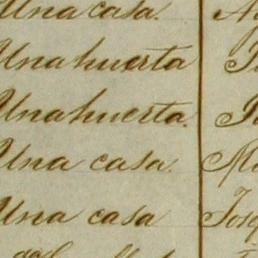 Una casa.
Una huerta
Una huerta.
Una casa.
Una casa